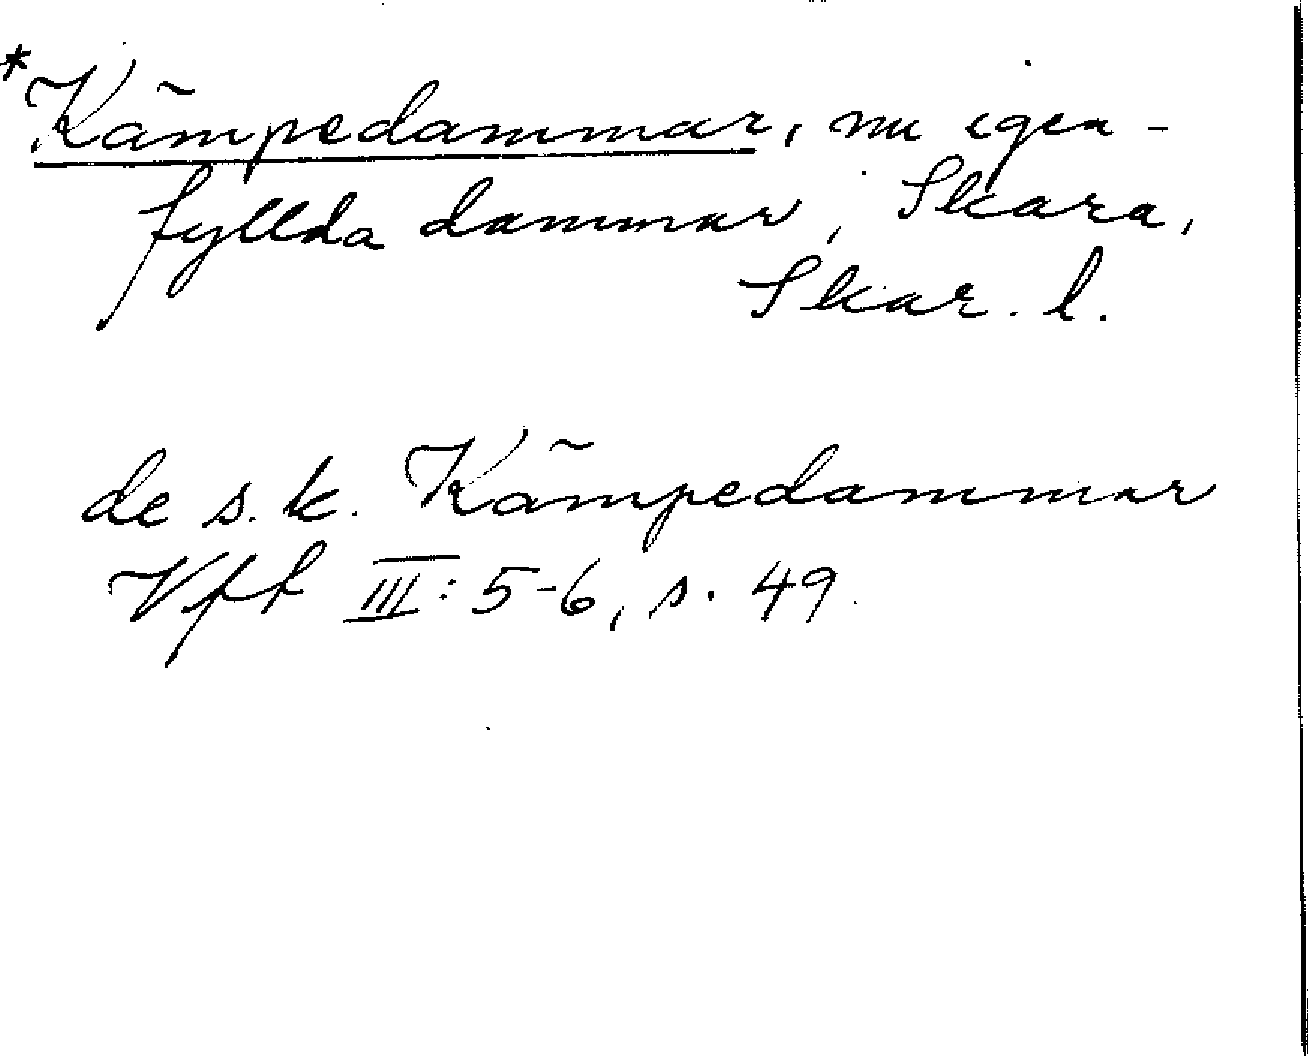 *Kämpedammar, nu igen-
fyllda dammar, Skara,
Skar. l.
de s.k. Kämpedammar
Vft III: 5-6, s. 49.